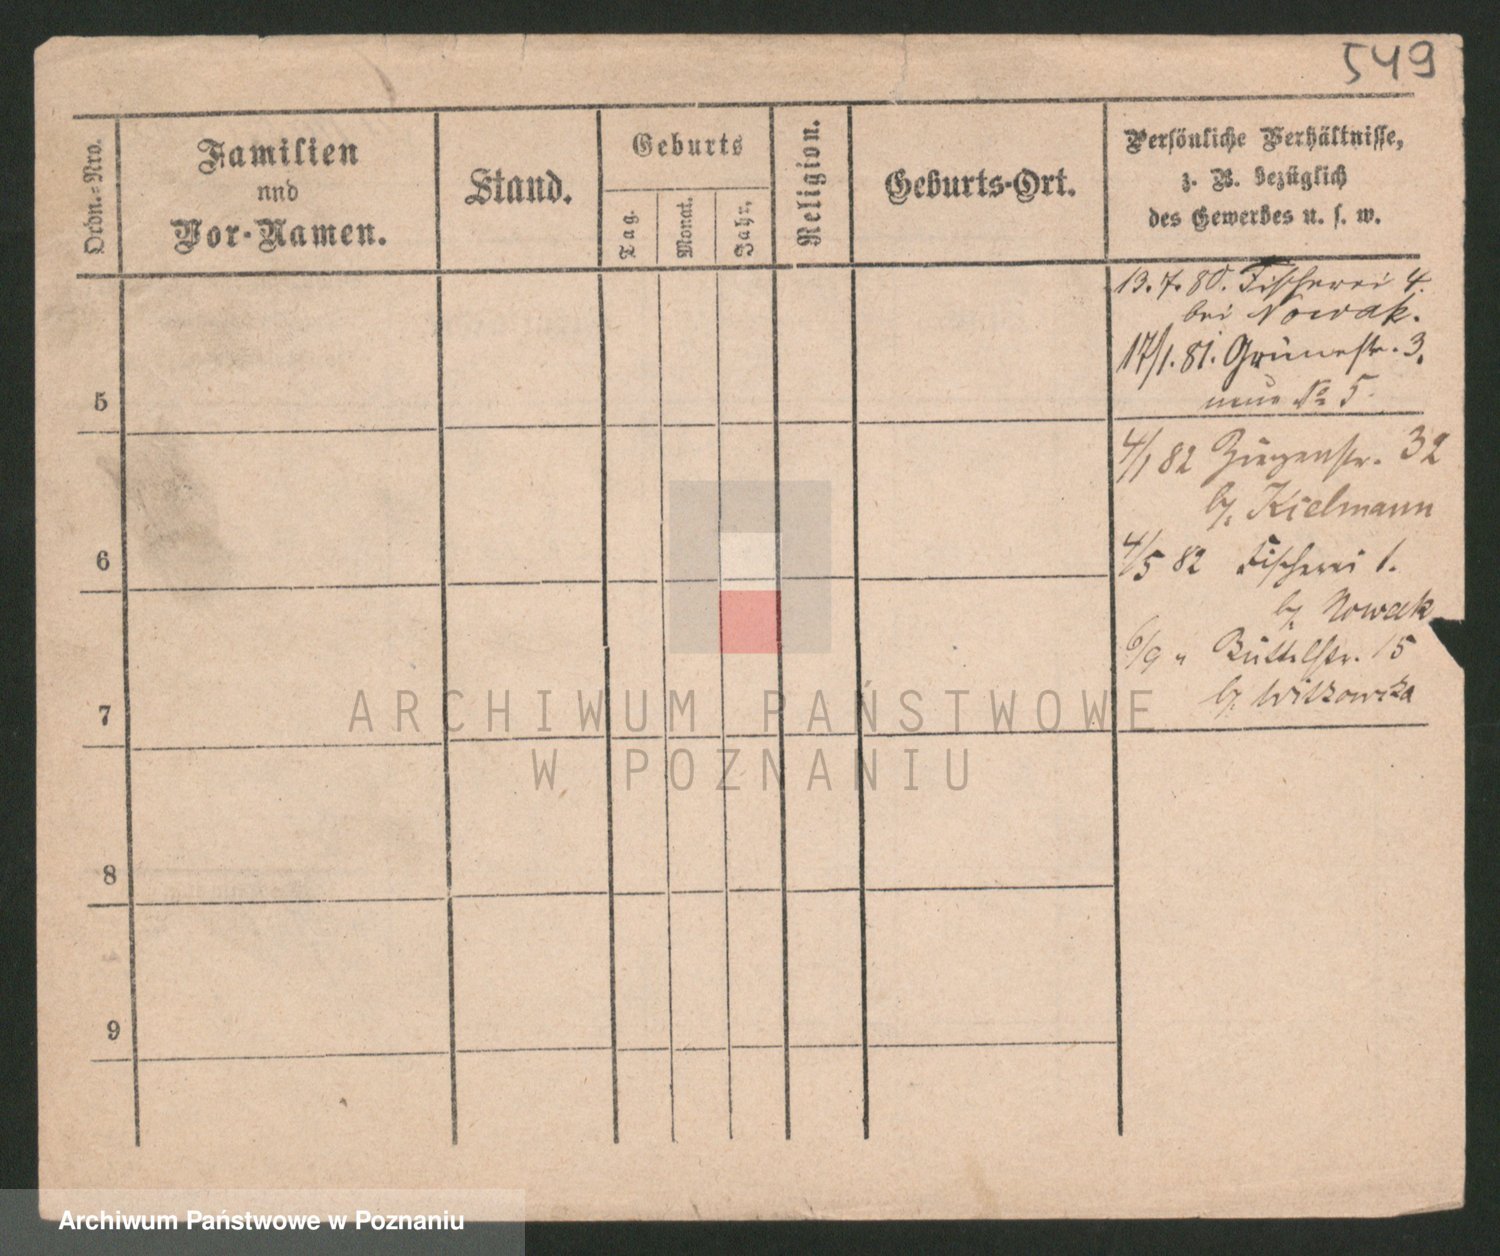 549
Ordn.=Nro.
Familien
und
Vor-Namen.
Stand.
Geburts
Tag.
Monat.
Jahr.
Religion.
Geburts-Ort.
Persönliche Verhältnisse,
z. B. bezüglich
des Gewerbes u. s. w.
13.7.80. Fischerei 4.
bei Nowak.
17/1.81. Grünestr. 3.
neue No 5
5
4/1 82 Ziegenstr. 32
b/. Kielmann
4/5 82 Fischerei 1.
6
b/. Nowak
6/9 " Büttelstr. 15
b/. Witkowska
7
8
9
ARCHIWUM PAŃSTWOWE
W POZNANIU
Archiwum Państwowe w Poznaniu